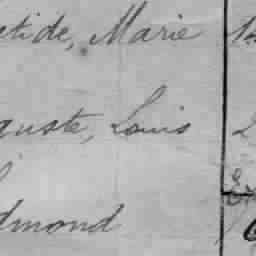 atide, Marie
guste, Louis
dmond